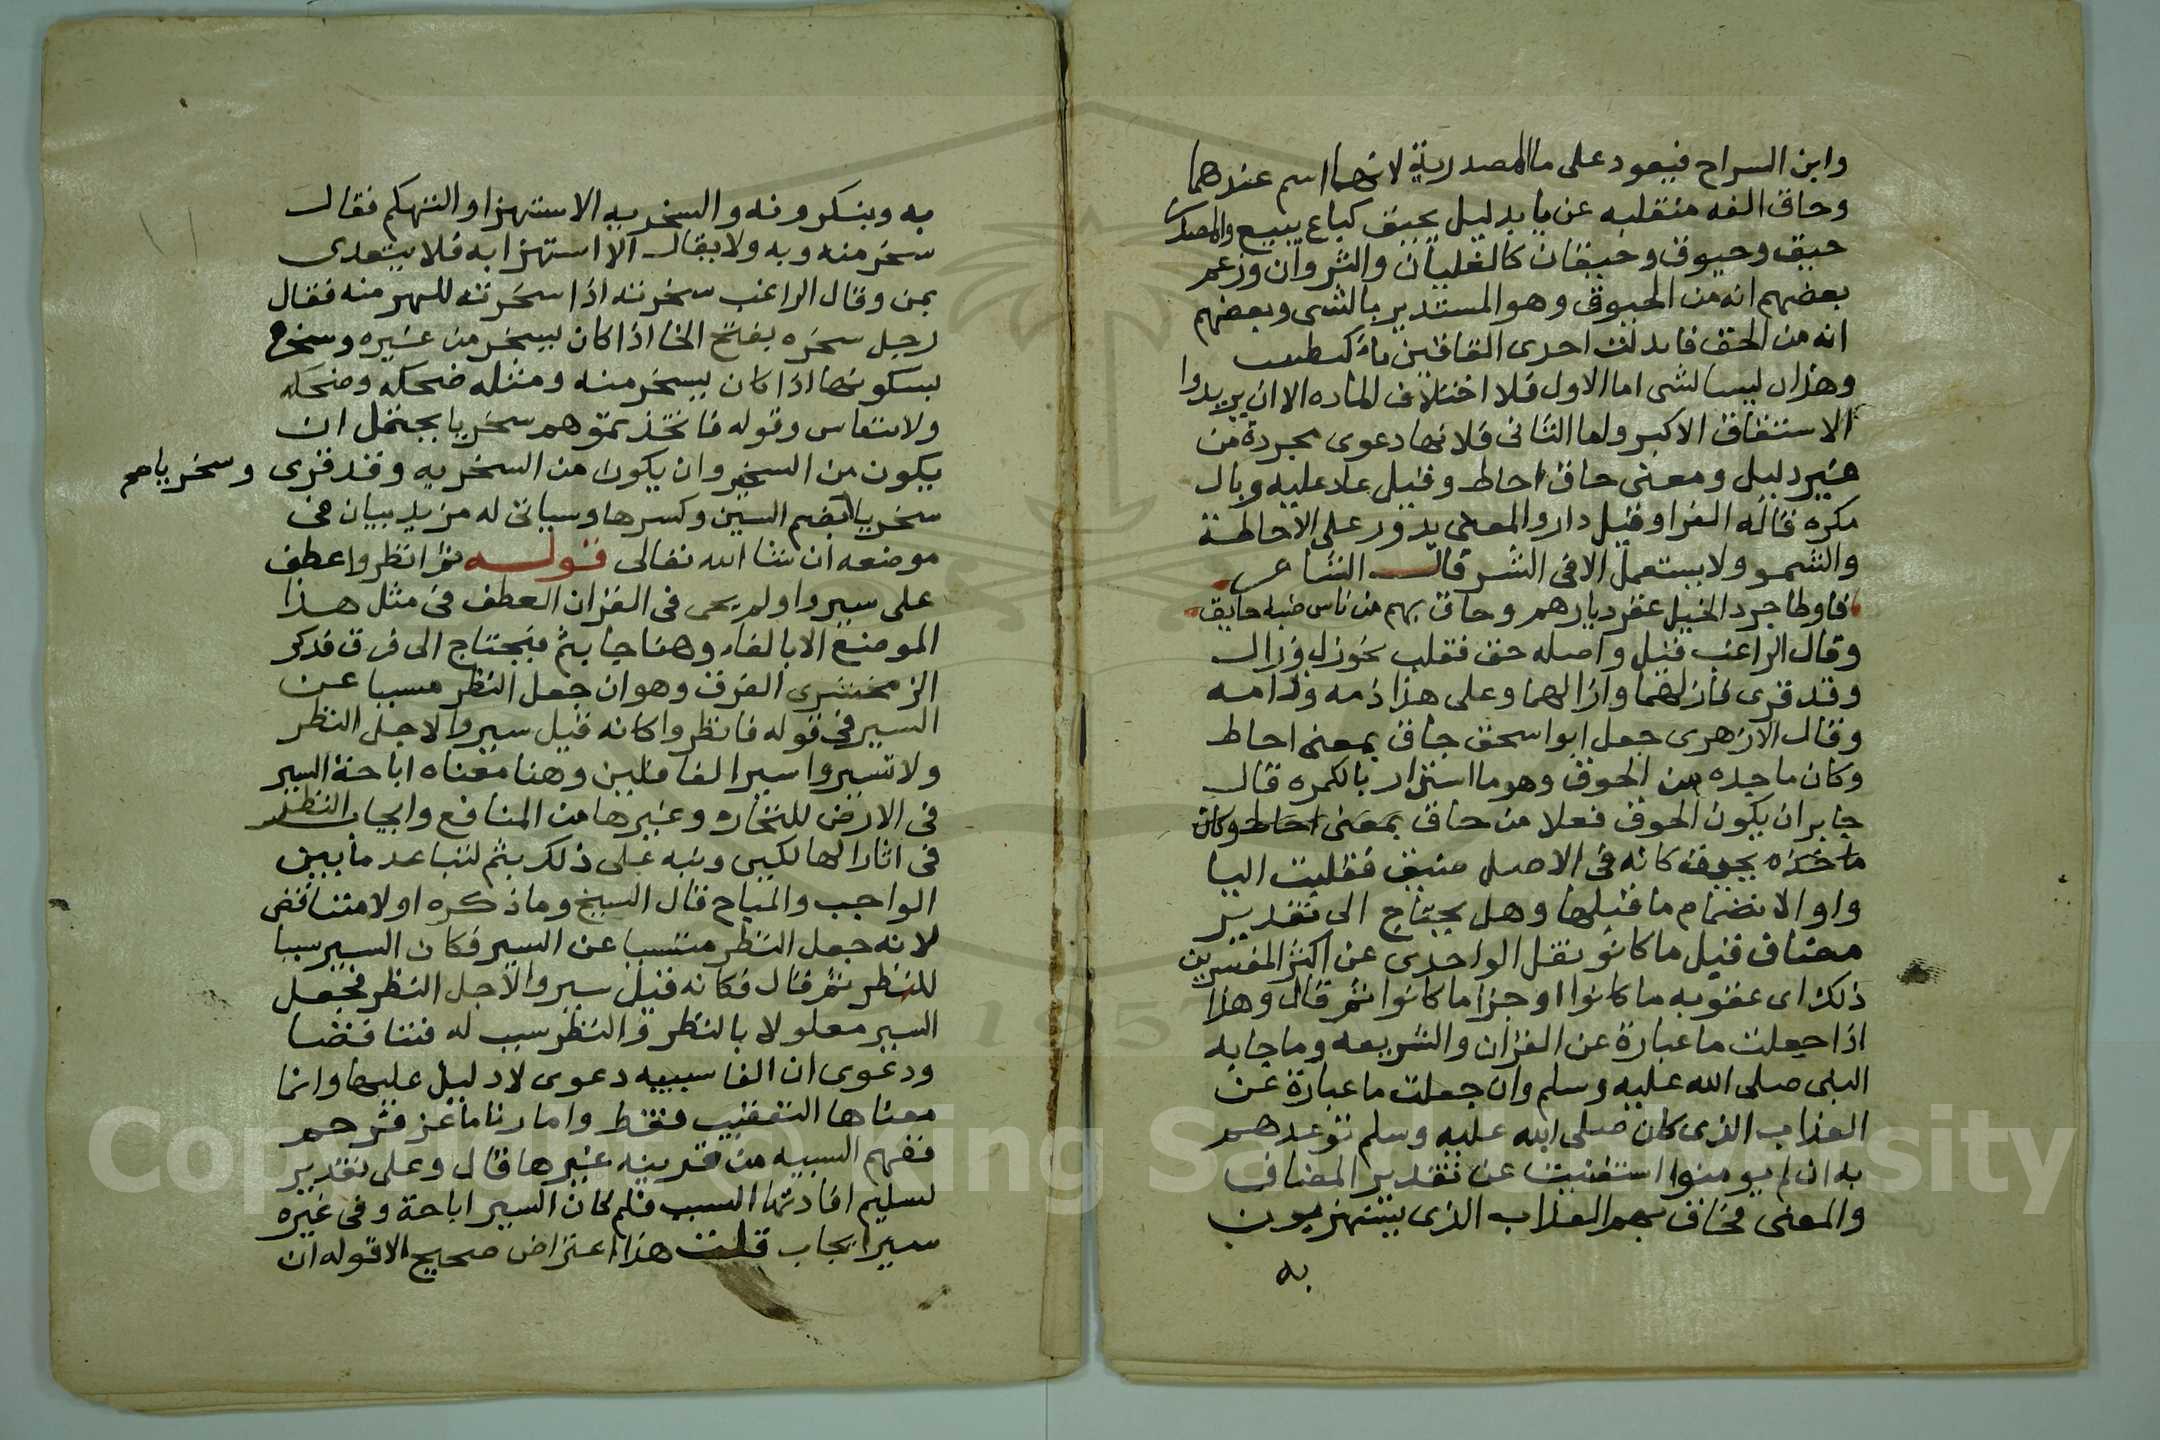 وابن السراج فيعود على ما المصدرية لانها اسم عندهما
وحاق الفه منقلبه عن يا بدليل يحيق كباع يبيع والمصدر
حيق وحيوق وحيقان كالغليان والنزوان وزعم
بعضهم انه من الحيوق وهو المستدير بالشى وبعضهم
انه من الحق فابدلت احدى القافين يا
وهذان ليسا بشى اما الاول فلاختلاف الماده الا ان يريدوا
الاشتقاق الاكبر واما الثانى فلانها دعوى مجردة من
غير دليل ومعنى حاق احاط وقيل عاد عليه وبال
مكره قاله الفرا وقيل دار والمعنى يدور على الاحاطة
والشمو ولا يستعمل الا فى الشر قال الشاعر
فاوطا جرد الخيل عقر ديارهم وحاق بهم من ناس ضبه حايق
وقال الراغب قيل واصله حق فقلب نحو زل وزال
وقد قرى فازلهما وازالهما وعلى هذا ذمه وذامه
وقال الازهرى جعل ابو اسحق حاق بمعنى احاط
وكان ماخذه من الحوق وهو ما استدار بالكمره قال
جايز ان يكون الحوق فعلا من حاق بمعنى احاط وكان
ماخذه يحيق كانه فى الاصل حيق فقلبت اليا
واوا لانضمام ما قبلها وهل يحتاج الى تقدير
مضاف قيل ما كانو نقل الواحدى عن اكثر المفسرين
ذلك اى عقوبه ما كانوا او جزا ما كانوا ثم قال وهذا
اذا جعلت ما عبارة عن القران والشريعه وما جا به
النبى صلى الله عليه وسلم وان جعلت ما عبارة عن
العذاب الذى كان صلى الله عليه وسلم توعدهم
به ان لم يومنوا استغنيت عن تقدير المضاف
والمعنى فحاق بهم العذاب الذى يستهزيون
به
به وينكرونه والسخريه الاستهزا والتهكم فقال
سخر منه وبه ولا يقال الا استهزا به فلا يتعدى
بمن وقال الراغب سخرته اذا سخرته للهز منه فقال
رجل سخره بفتح الخا اذا كان يسخر من غيره وسخره
بسكونها اذا كان يسخر منه ومثله ضحكه وضحكه
ولا ينقاس وقوله فاتخذتموهم سخريا يحتمل ان
يكون من السخير وان يكون من السخريه وقد قرى وسخرياهم
سخريا بضم السين وكسرها وسياتى له مزيد بيان فى
موضعه ان شا الله تعالى قوله ثم انظروا عطف
على سيروا ولم يجى فى القران العطف فى مثل هذا
الموضع الا بالفاء وهنا جا بثم فيحتاج الى فرق فذكر
الزمخشرى الفرق وهو ان جعل النظر مسببا عن
السير فى قوله فانظروا كانه قيل سيروا لاجل النظر
ولا تسيروا سير الغافلين وهنا معناه اباحة السير
فى الارض للتجاره وغيرها من المنافع وايجاب النظر
فى اثار الهالكين ونبه على ذلك بثم لتباعد ما بين
الواجب والمباح قال الشيخ وما ذكره اولا متناقض
لانه جعل النظر متسببا عن السير فكان السير سببا
للنظر ثم قال فكانه قيل سيروا لاجل النظر فجعل
السير معلولا بالنظر والنظر سبب له فتناقضا
ودعوى ان الفا سببيه دعوى لا دليل عليها وانما
معناها التعقيب فقط واما زنا ماعز فرجم
ففهم السببيه من قرينه غيرها قال وعلى تقدير
تسليم افادتها السبب فلم كان السير اباحة وفى غيره
سير ايجاب قلت هذا اعتراض صحيح الا قوله ان
Copyright © King Saud University
1957